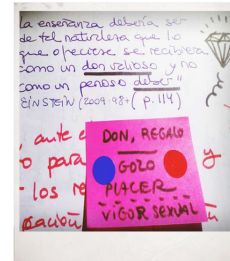 La enseñanza debería ser
de tal naturaleza que lo
que ofreciese se recibiera
como un don valioso y no
como un penoso deber"
EINSTEIN (2009:98+( p. 114)
ante
o para
y
los
DON, REGALO
GOZO
PLACER
VIGOR SEXUAL